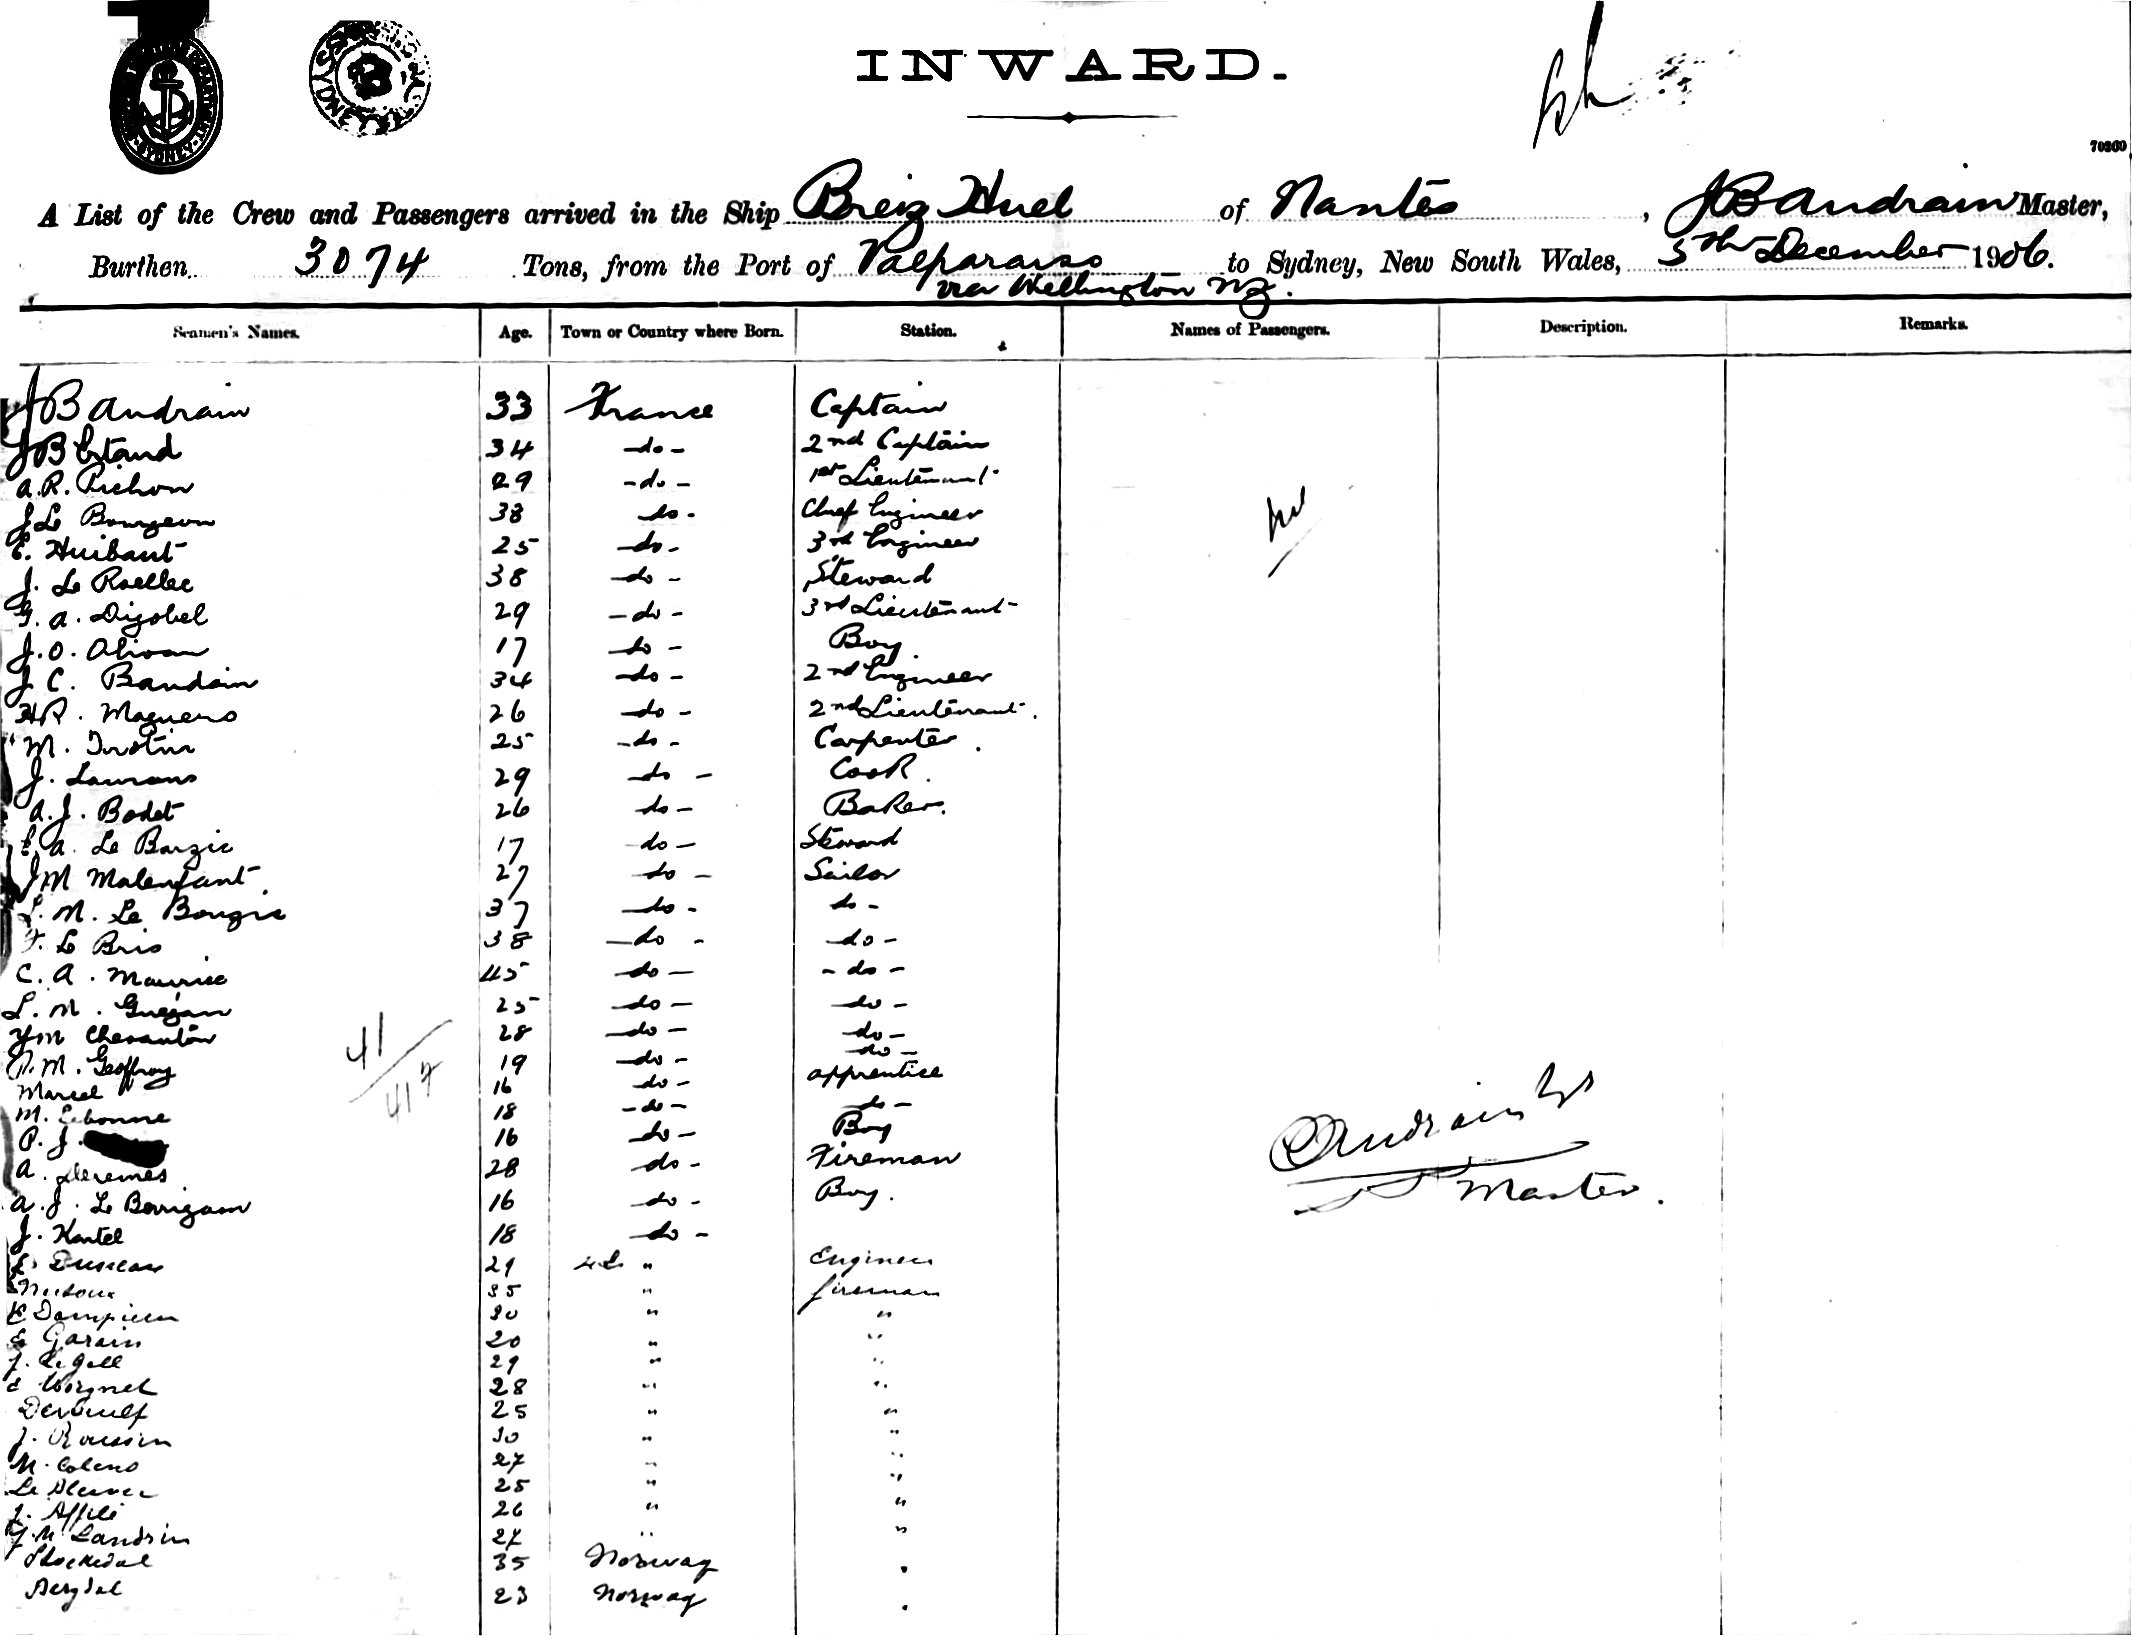 INWARD.
70260
A List of the Crew and Passengers arrived in the Ship Breiz Huel of Nantes, JB Andrain Master,
Burthen 3074 Tons, from the Port of Valparaiso to Sydney, New South Wales, 5th December 1906.
via Wellington NZ.
Seamen's Names. Age. Town or Country where Born. Station. Names of Passengers. Description. Remarks.
JB Andrain 33 France Captain
JB Estaud 34 -do- 2nd Captain
A.R. Pichon 29 -do- 1st Lieutenant
J Le Bourgeon 38 do- Chief Engineer
E. Huibant 25 -do- 3rd Engineer
J. Le Roellec 38 -do- Steward
F. A. Digobel 29 -do- 3rd Lieutenant
J. O. Olivan 17 do- Boy
J C. Baudoin 34 -do- 2nd Engineer
HR. Magueno 26 -do- 2nd Lieutenant.
M. Trotin 25 -do- Carpenter.
J. Laurans 29 do- Cook.
A.J. Bodet 26 do- Baker.
E A. Le Barzic 17 do- Steward
JM Malenfant 27 do- Sailor
L. M. Le Bougic 37 do- do-
F. Le Bris 38 -do- -do-
C. A. Maurice 45 -do- -do-
L. M. Guégan 25 -do- do-
YM Chevanton 28 -do- -do-
P.M. Geoffroy 19 do- do-
Marcel 16 do- apprentice
41
417
M. Lebonne 18 -do- do-
P. J. 16 do- Boy
A. Deremes 28 do- Fireman
A. J. Le Borrigam 16 do- Boy.
J. Kantel 18 do-
L. Duncan 29 do " Engineer
35 " fireman
E Dampierre 30 " "
E Garain 20 " "
J. Le Gall 29 " "
E Voignel 28 " "
25 " "
J. Roussin 30 " "
M. Coleno 27 " "
Le 25 " "
J. Affile 26 " "
J.M Landrin 27 " "
Stockedal 35 Norway "
Bergdal 23 Norway "
Andrain
Master.
SYDNEY
SYDNEY